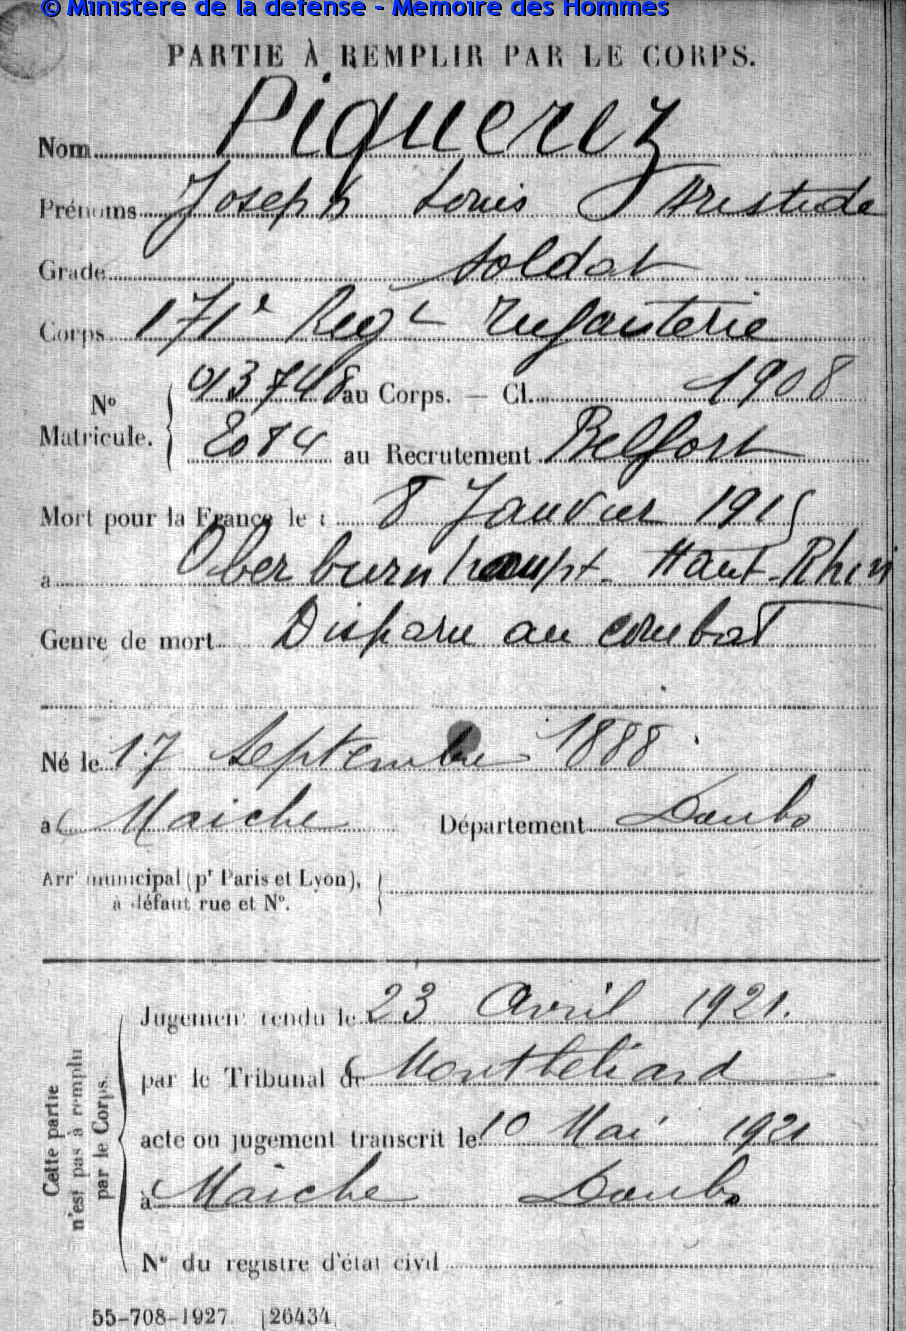 © Ministère de la défense - Mémoire des Hommes
PARTIE À REMPLIR PAR LE CORPS.
Nom Piquerez
Prénoms Joseph Louis Aristide
Grade Soldat
Corps 171e Regt Infanterie
No Matricule. 013748 au Corps. — Cl. 1908
au Recrutement Belfort
Mort pour la France le 8 Janvier 1915
à Oberburnhaupt. Haut-Rhin
Genre de mort Disparu au combat
Né le 17 Septembre 1888
à Maiche Département Doubs
Arrt municipal (pr Paris et Lyon),
à défaut rue et No.
Cette partie
n'est pas à remplir
par le Corps.
Jugement rendu le 23 Avril 1921.
par le Tribunal de Montbéliard
acte ou jugement transcrit le 10 Mai 1921
à Maiche Doubs
No du registre d'état civil
55-708-1927. [26434.